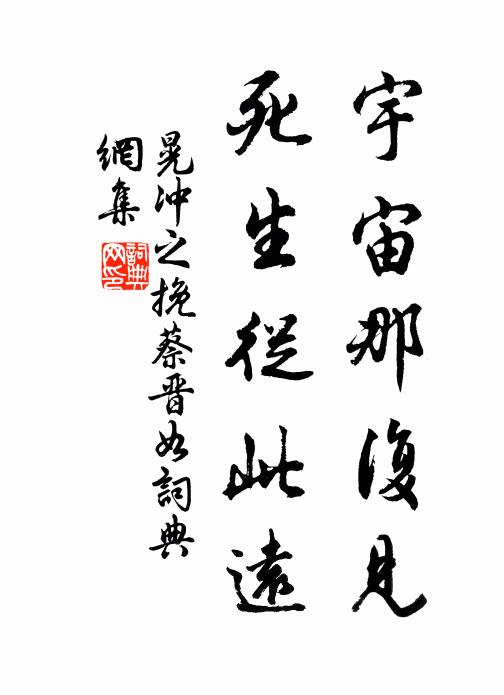 宇宙那復見
死生從此遠
晃沖之挽蔡晋如詞典
網集
詞典
网印